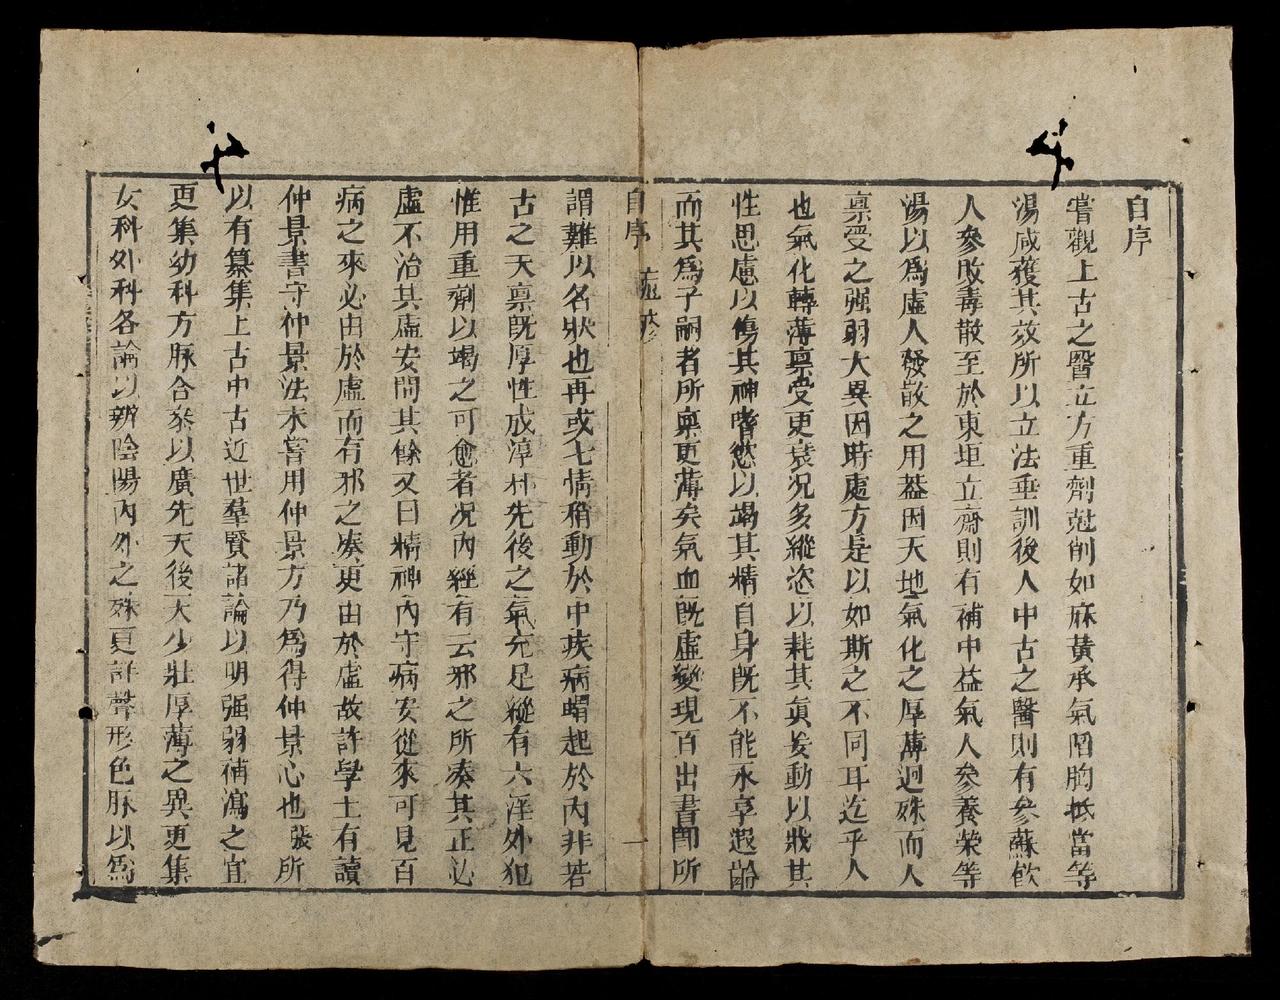 自序
嘗觀上古之醫立方重劑尅削如麻黃承氣陷胸抵當等
湯咸獲其效所以立法垂訓後人中古之醫則有參蘇飲
人參敗毒散至於東垣立齋則有補中益氣人參養榮等
湯以爲虛人發散之用葢因天地氣化之厚薄迥殊而人
禀受之强弱大異因時處方是以如斯之不同耳迄乎人
也氣化轉薄禀受更衰况多縱恣以耗其眞妄動以戕其
性思慮以傷其神嗜慾以竭其精自身既不能永享遐齡
而其爲子嗣者所禀更薄矣氣血既虛變現百出書卽所
自序
一
謂難以名狀也再或七情稍動於中疾病蝟起於內非若
古之天禀既厚性成淳朴先後之氣充足縱有六淫外犯
惟用重劑以竭之可愈者况內經有云邪之所凑其正必
虛不治其虛安問其餘又曰精神內守病安從來可見百
病之來必由於虛而有邪之凑更由於虛故許學士有讀
仲景書守仲景法未嘗用仲景方乃爲得仲景心也張所
以有纂集上古中古近世羣賢諸論以明强弱補瀉之宜
更集幼科方脉合參以廣先天後天少壯厚薄之異更集
女科外科各論以辨陰陽內外之殊更詳聲形色脉以爲